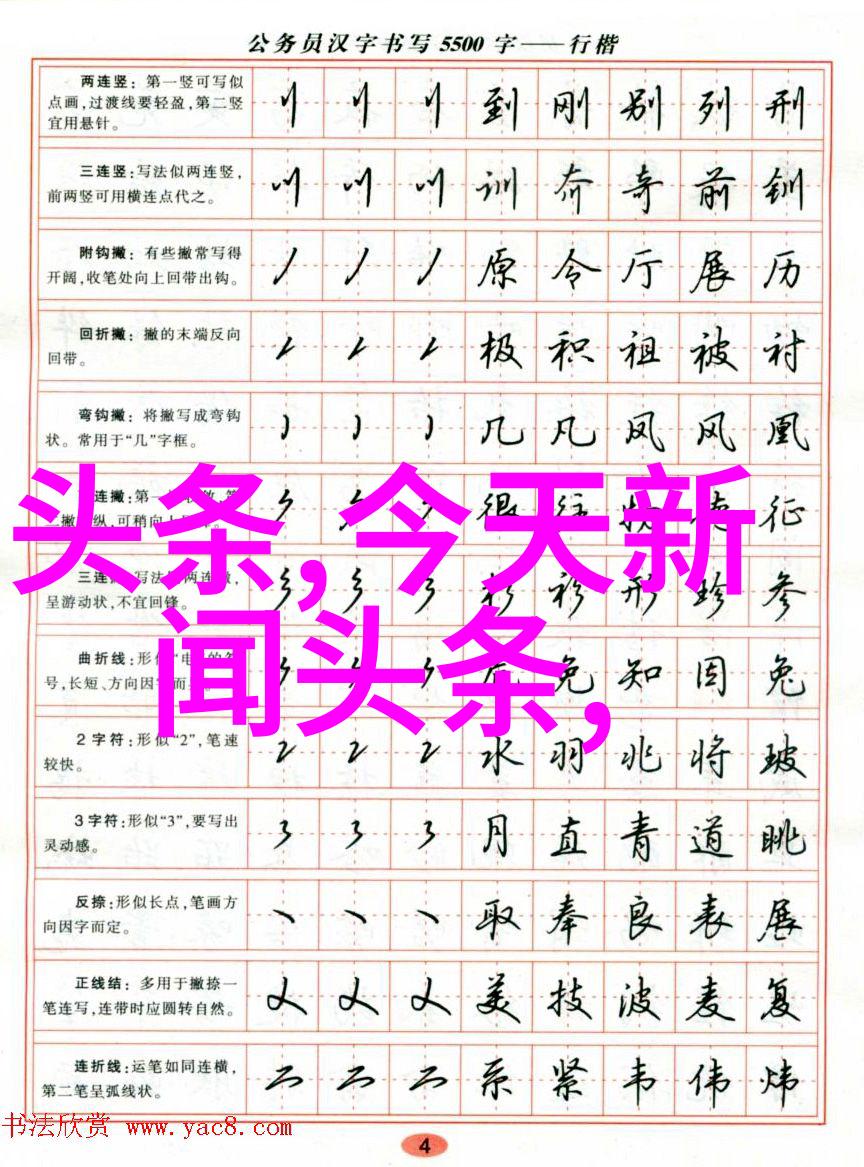 公务员汉字书写5500字——行楷
两连竖：第一竖可写似
点画,过渡线要轻盈,第二竖
宜用悬针。
到 刚 别 列 刑
三连竖:写法似两连竖,
前两竖可用横连点代之。
训 夼 奇 前 钏
附钩撇：有些撇常写得
开阔,收笔处向上回带出钩。
原 令 厅 展 历
回折撇：撇的末端反向
回带。
极 积 祖 被 衬
弯钩撇：将撇写成弯钩
状。常用于“几”字框。
几 凡 凤 风 凰
头条,今天新
闻头条,
连撇:第一
撇 纵,可稍向
很 往 征
三连 写法 两连
呈游动状,不宜回锋。
衫 形 珍 参
曲折线:形似“电”的
号,长短、方向因字而
免 知 因 兔
2字符:形似“2”,笔速
较快。
水 羽 兆 将 玻
3字符:形似“3”,要写出
灵动感。
月 直 青 道 眺
反捺:形似长点,笔画方
向因字而定。
取 奉 良 表 展
正线结：多用于撇捺一
笔连写,连带时应圆转自然。
美 技 波 麦 复
连折线:运笔如同连横,
第二笔呈弧线状。
系 紧 韦 伟 炜
书法欣赏 www.yac8.com
4